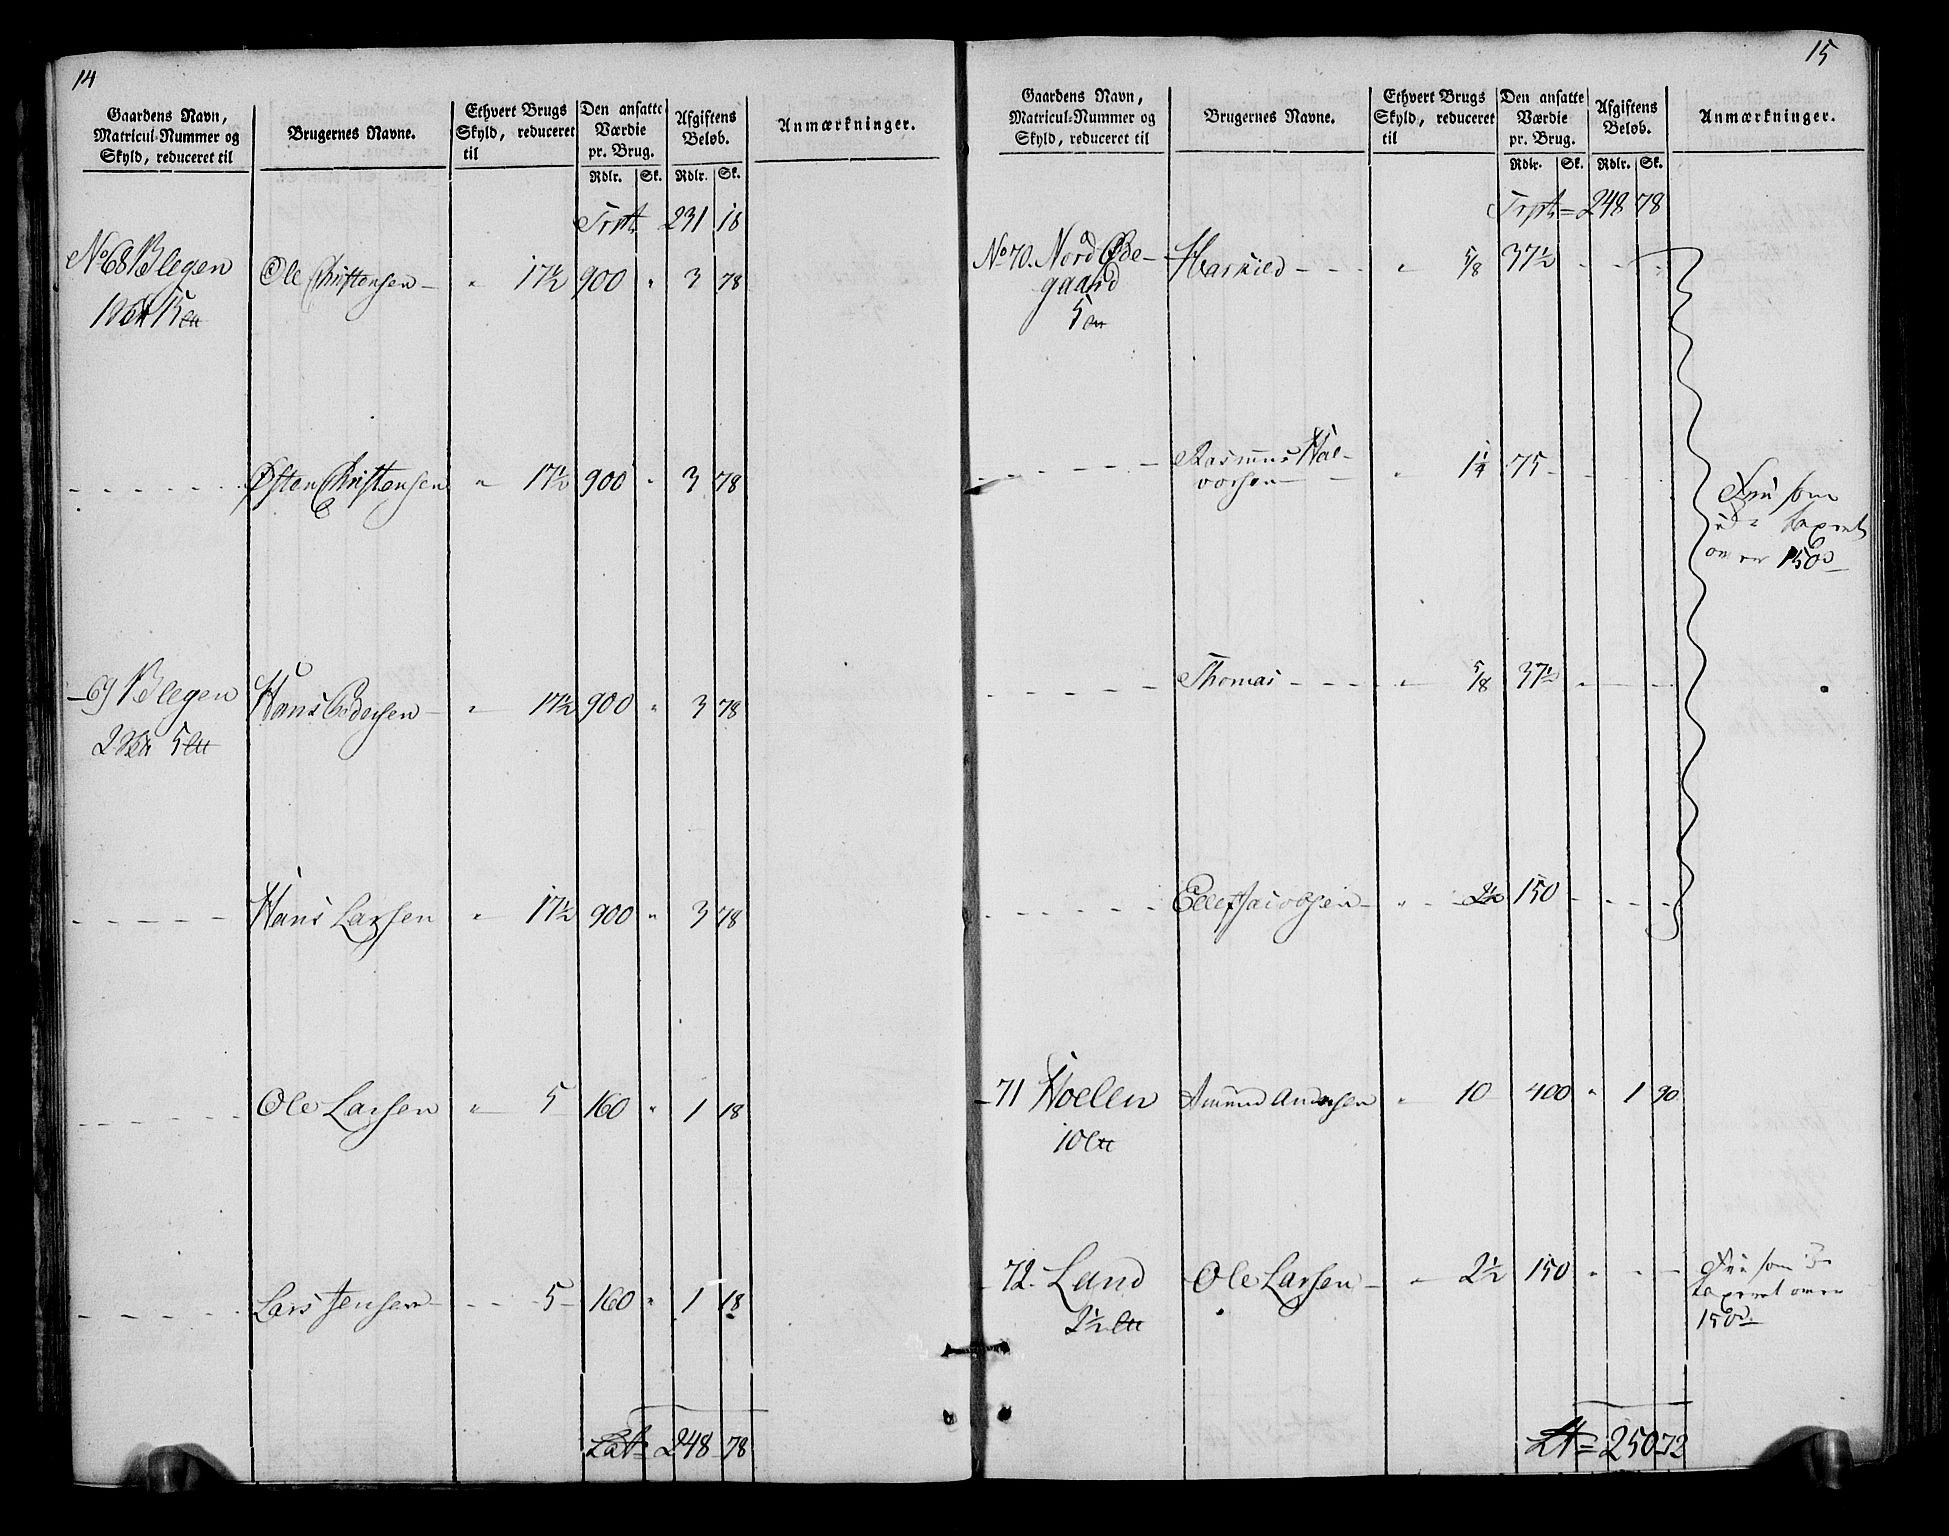 14
Gaardens Navn,
Matricul-Nummer og
Skyld, reduceret til
Brugernes Navne.
Ethvert Brugs
Skyld, reduceret
til
Den ansatte
Værdie
pr. Brug.
Rdlr. Sk.
Afgiftens
Beløb.
Rdlr. Sk.
Anmærkninger.
Trpt 231 18
No 68 Blegen Ole Christensen - " 17½ 900 " 3 78
15
Østen Christensen " 17½ 900 " 3 78
- 69 Blegen Hans Pedersen - " 17½ 900 " 3 78
2 5
Hans Larsen " 17½ 900 " 3 78
Ole Larsen " 5 160 " 1 18
Lars Jensen - - - 5 160 " 1 18
Lat = 248 78
15
Gaardens Navn,
Matricul-Nummer og
Skyld, reduceret til
Brugernes Navne.
Ethvert Brugs
Skyld, reduceret
til
Den ansatte
Værdie
pr. Brug.
Rdlr. Sk.
Afgiftens
Beløb.
Rdlr. Sk.
Anmærkninger.
Trpt = 248 78
No 70. Nord Øde- - - - " 5/8 37½ - - -
gaard
5
Rasmus Hal- " 1¼ 75 -
vorsen
Fri som
taxeret
150
Thomas - - - - 5/8 37½ - - -
Ellef Jacobsen - " 2½ 150 - - -
- 71 Hoelen Amund Andersen " 10 400 " 1 90
10
- 72. Lund Ole Larsen - " 2½ 150 " - -
2½
Fri som
taxeret
150
Lt = 250 72